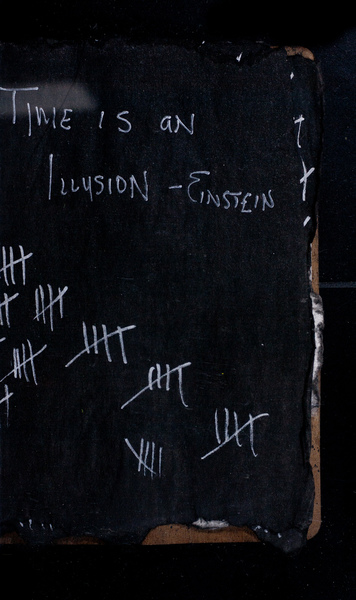 TIME IS AN
ILLUSION - EINSTEIN